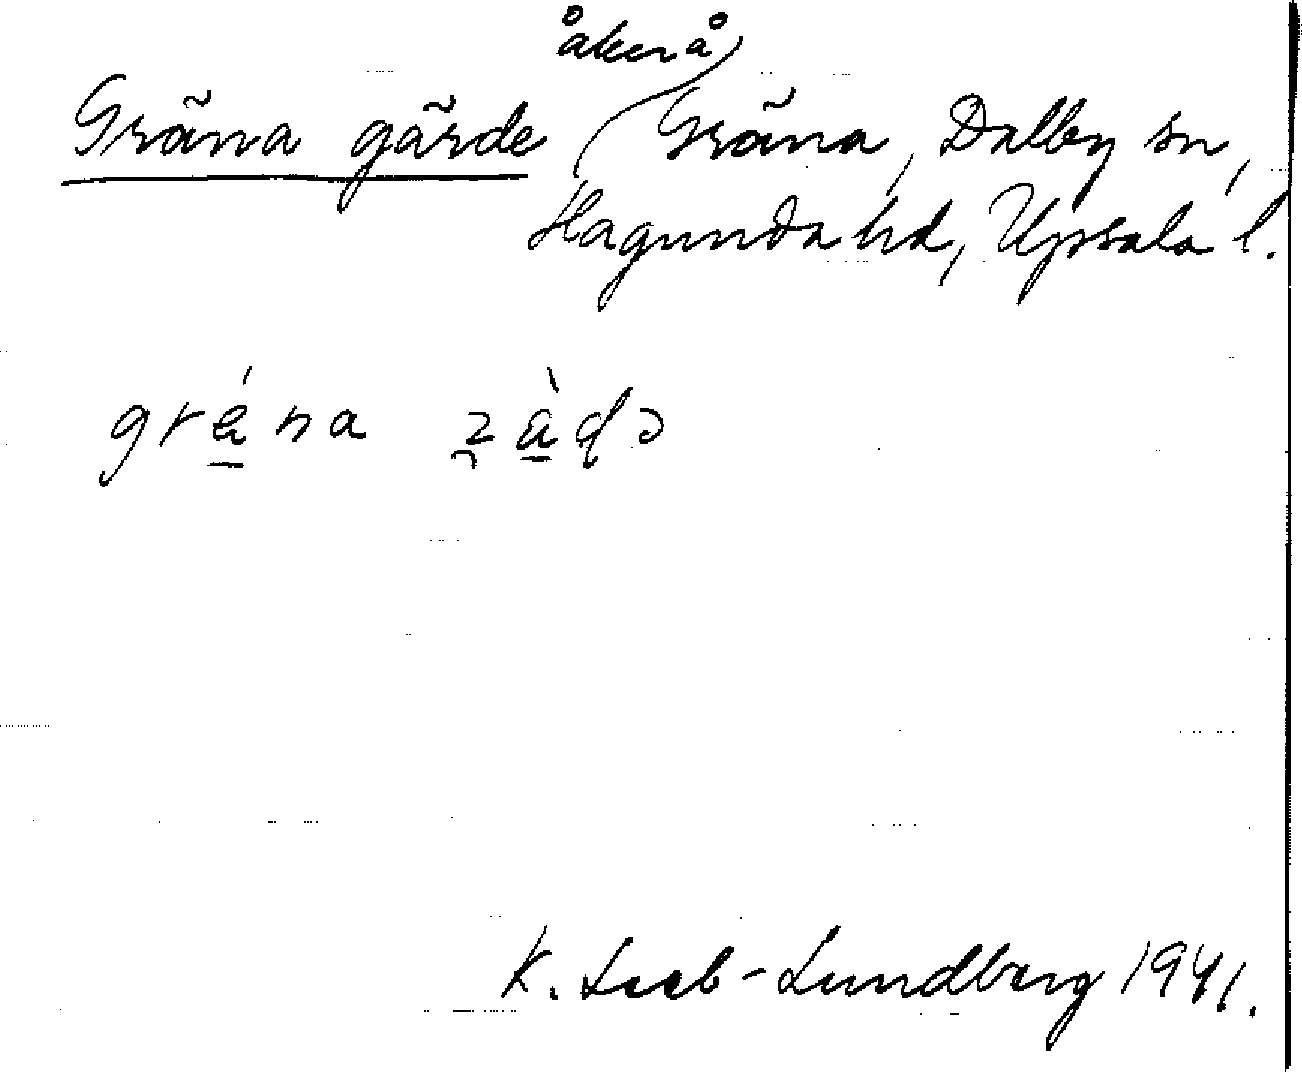 Gräna gärde åker å Gräna, Dalby sn,
Hagunda hd, Upsala l.
K. Leeb-Lundberg 1941.